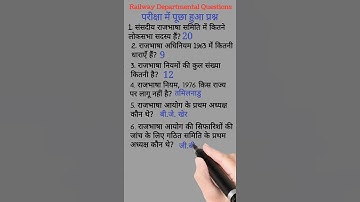 Railway Departmental Questions
परीक्षा में पूछा हुआ प्रश्न
1. संसदीय राजभाषा समिति में कितने
लोकसभा सदस्य हैं? 20
2. राजभाषा अधिनियम 1963 में कितनी
धाराएँ हैं? 9
3. राजभाषा नियमों की कुल संख्या
कितनी है? 12
4. राजभाषा नियम, 1976 किस राज्य
पर लागू नहीं है? तमिलनाडु
5. राजभाषा आयोग के प्रथम अध्यक्ष
कौन थे? बी.जे. खेर
6. राजभाषा आयोग की सिफारिशों की
जांच के लिए गठित समिति के प्रथम
अध्यक्ष कौन थे? जी.बी